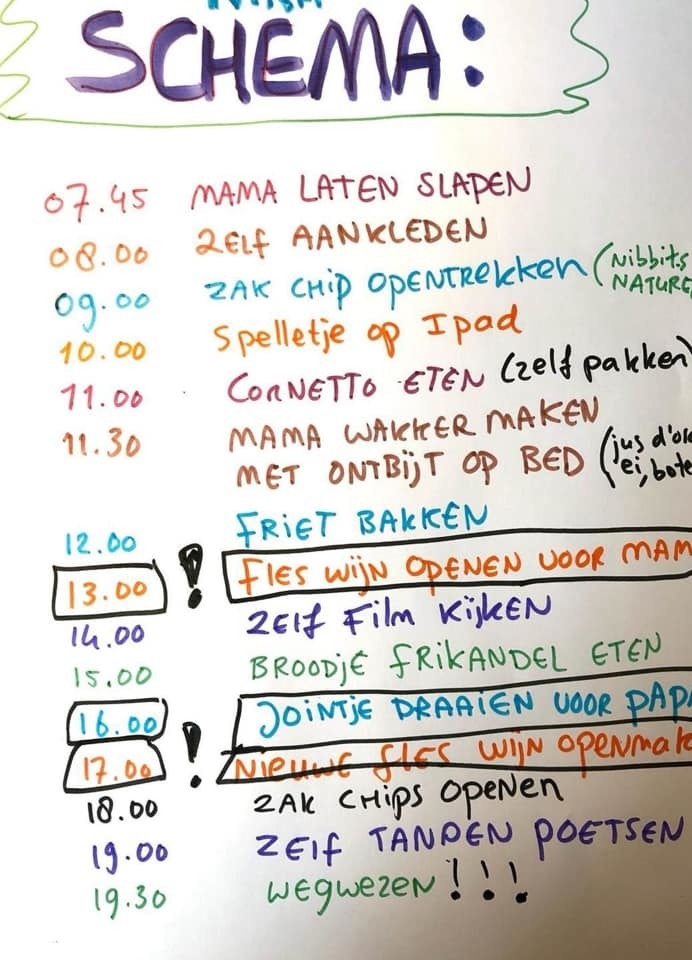 SCHEMA:
07.45 MAMA LATEN SLAPEN
08.00 ZELF AANKLEDEN
09.00 ZAK CHIP OPENTREKKEN (NibbiTS
NATURE
10.00 Spelletje op Ipad
11.00 CORNETTO ETEN (zelf pakken)
11.30 MAMA WAKKER MAKEN
MET ONTBIJT OP BED (jus d'or
ei, bote
12.00 FRIET BAKKEN
13.00 ! FLES WIJN OPENEN VOOR MAM
14.00 ZELF FILM KIJKEN
15.00 BROODJE FRIKANDEL ETEN
16.00 ! JOINTJE DRAAIEN VOOR PAPA
17.00 NIEUWE FLES WIJN OPENMAK
18.00 ZAK CHIPS OPENEN
19.00 ZELF TANDEN POETSEN
19.30 WEGWEZEN!!!